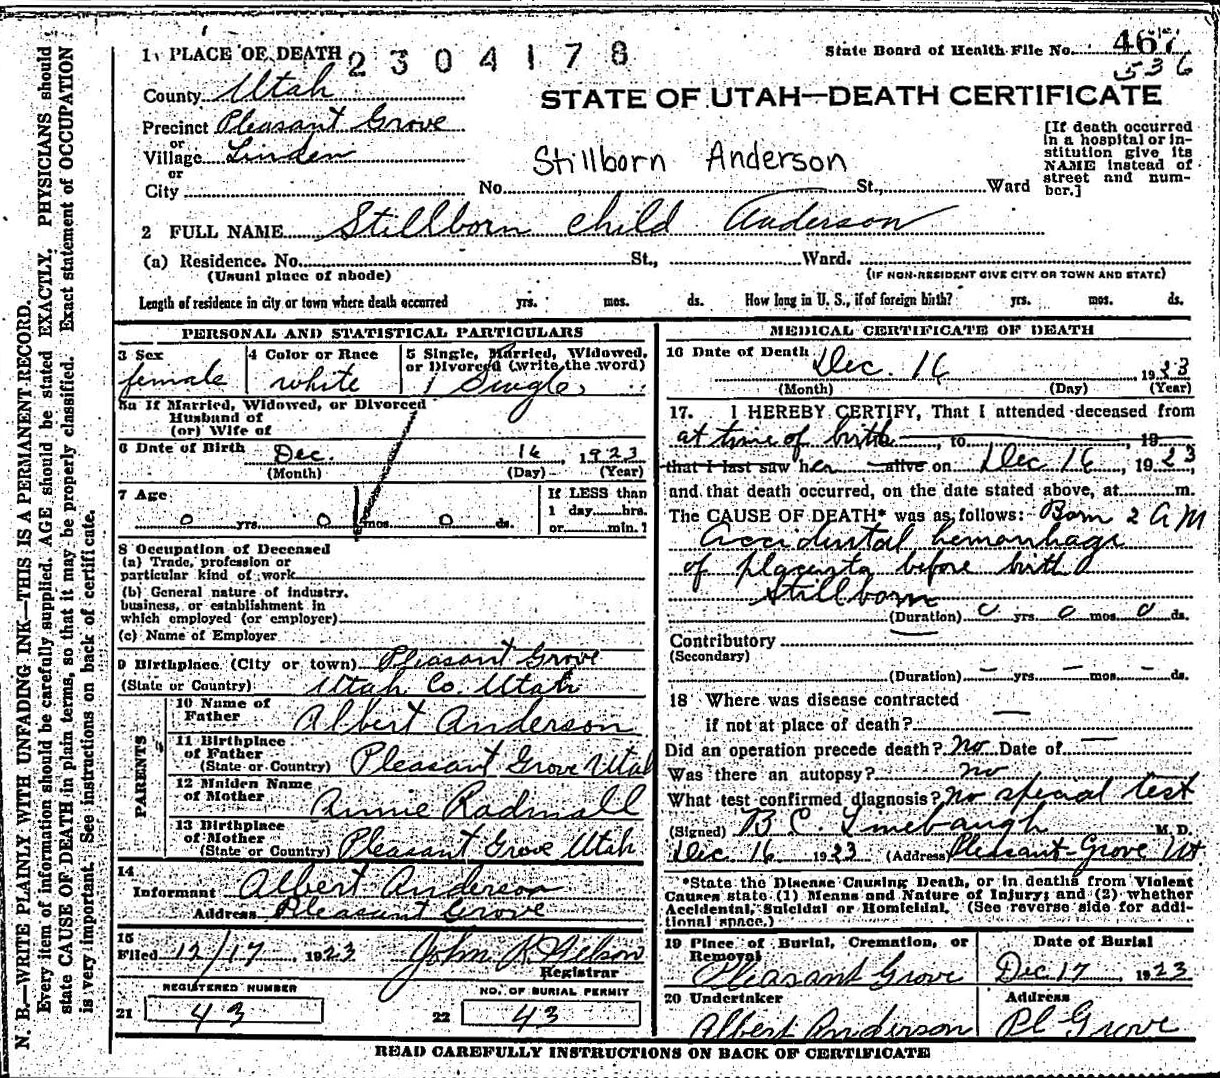 1. PLACE OF DEATH 2304178 State Board of Health File No. 467
536
County Utah
STATE OF UTAH—DEATH CERTIFICATE
Precinct Pleasant Grove
or
Village Linden
or
City No. St., Ward
Stillborn Anderson
[If death occurred
in a hospital or in-
stitution give its
NAME instead of
street and num-
ber.]
2 FULL NAME Stillborn child Anderson
(a) Residence. No. St., Ward.
(Usual place of abode) (IF NON-RESIDENT GIVE CITY OR TOWN AND STATE)
Length of residence in city or town where death occurred yrs. mos. ds. How long in U. S., if of foreign birth? yrs. mos. ds.
PERSONAL AND STATISTICAL PARTICULARS
3 Sex
female
4 Color or Race
white
5 Single, Married, Widowed,
or Divorced (write the word)
Single
5a If Married, Widowed, or Divorced
Husband of
(or) Wife of
6 Date of Birth Dec. 16, 1923
(Month) (Day) (Year)
7 Age
0 yrs. 0 mos. 0 ds.
If LESS than
1 day hrs.
or min.?
8 Occupation of Deceased
(a) Trade, profession or
particular kind of work
(b) General nature of industry,
business, or establishment in
which employed (or employer)
(c) Name of Employer
9 Birthplace (City or town) Pleasant Grove
(State or Country) Utah Co. Utah
PARENTS
10 Name of
Father Albert Anderson
11 Birthplace
of Father
(State or Country) Pleasant Grove Utah
12 Maiden Name
of Mother Annie Radmall
13 Birthplace
of Mother
(State or Country) Pleasant Grove Utah
14
Informant Albert Anderson
Address Pleasant Grove
15
Filed 12/17 1923 John K Nelson
Registrar
REGISTERED NUMBER
21 43
NO. OF BURIAL PERMIT
22 43
MEDICAL CERTIFICATE OF DEATH
16 Date of Death Dec. 16 1923
(Month) (Day) (Year)
17. I HEREBY CERTIFY, That I attended deceased from
at time of birth, to, 19
that I last saw her alive on Dec 16, 1923,
and that death occurred, on the date stated above, at m.
The CAUSE OF DEATH* was as follows: Born 2 AM
Accidental hemorrhage
of placenta before birth
Stillborn
(Duration) 0 yrs. 0 mos. 0 ds.
Contributory
(Secondary)
(Duration) – yrs. – mos. – ds.
18 Where was disease contracted
if not at place of death? —
Did an operation precede death? No Date of —
Was there an autopsy? no
What test confirmed diagnosis? No special test
(Signed) B C Linebaugh M. D.
Dec 16 1923 (Address) Pleasant Grove Ut
*State the Disease Causing Death, or in deaths from Violent
Causes state (1) Means and Nature of Injury; and (2) whether
Accidental, Suicidal or Homicidal. (See reverse side for addi-
tional space.)
19 Place of Burial, Cremation, or
Removal
Pleasant Grove
Date of Burial
Dec. 17, 1923
20 Undertaker
Albert Anderson
Address
Pl Grove
READ CAREFULLY INSTRUCTIONS ON BACK OF CERTIFICATE
N. B.—WRITE PLAINLY WITH UNFADING INK—THIS IS A PERMANENT RECORD.
Every item of information should be carefully supplied. AGE should be stated EXACTLY. PHYSICIANS should
state CAUSE OF DEATH in plain terms, so that it may be properly classified. Exact statement of OCCUPATION
is very important. See instructions on back of certificate.